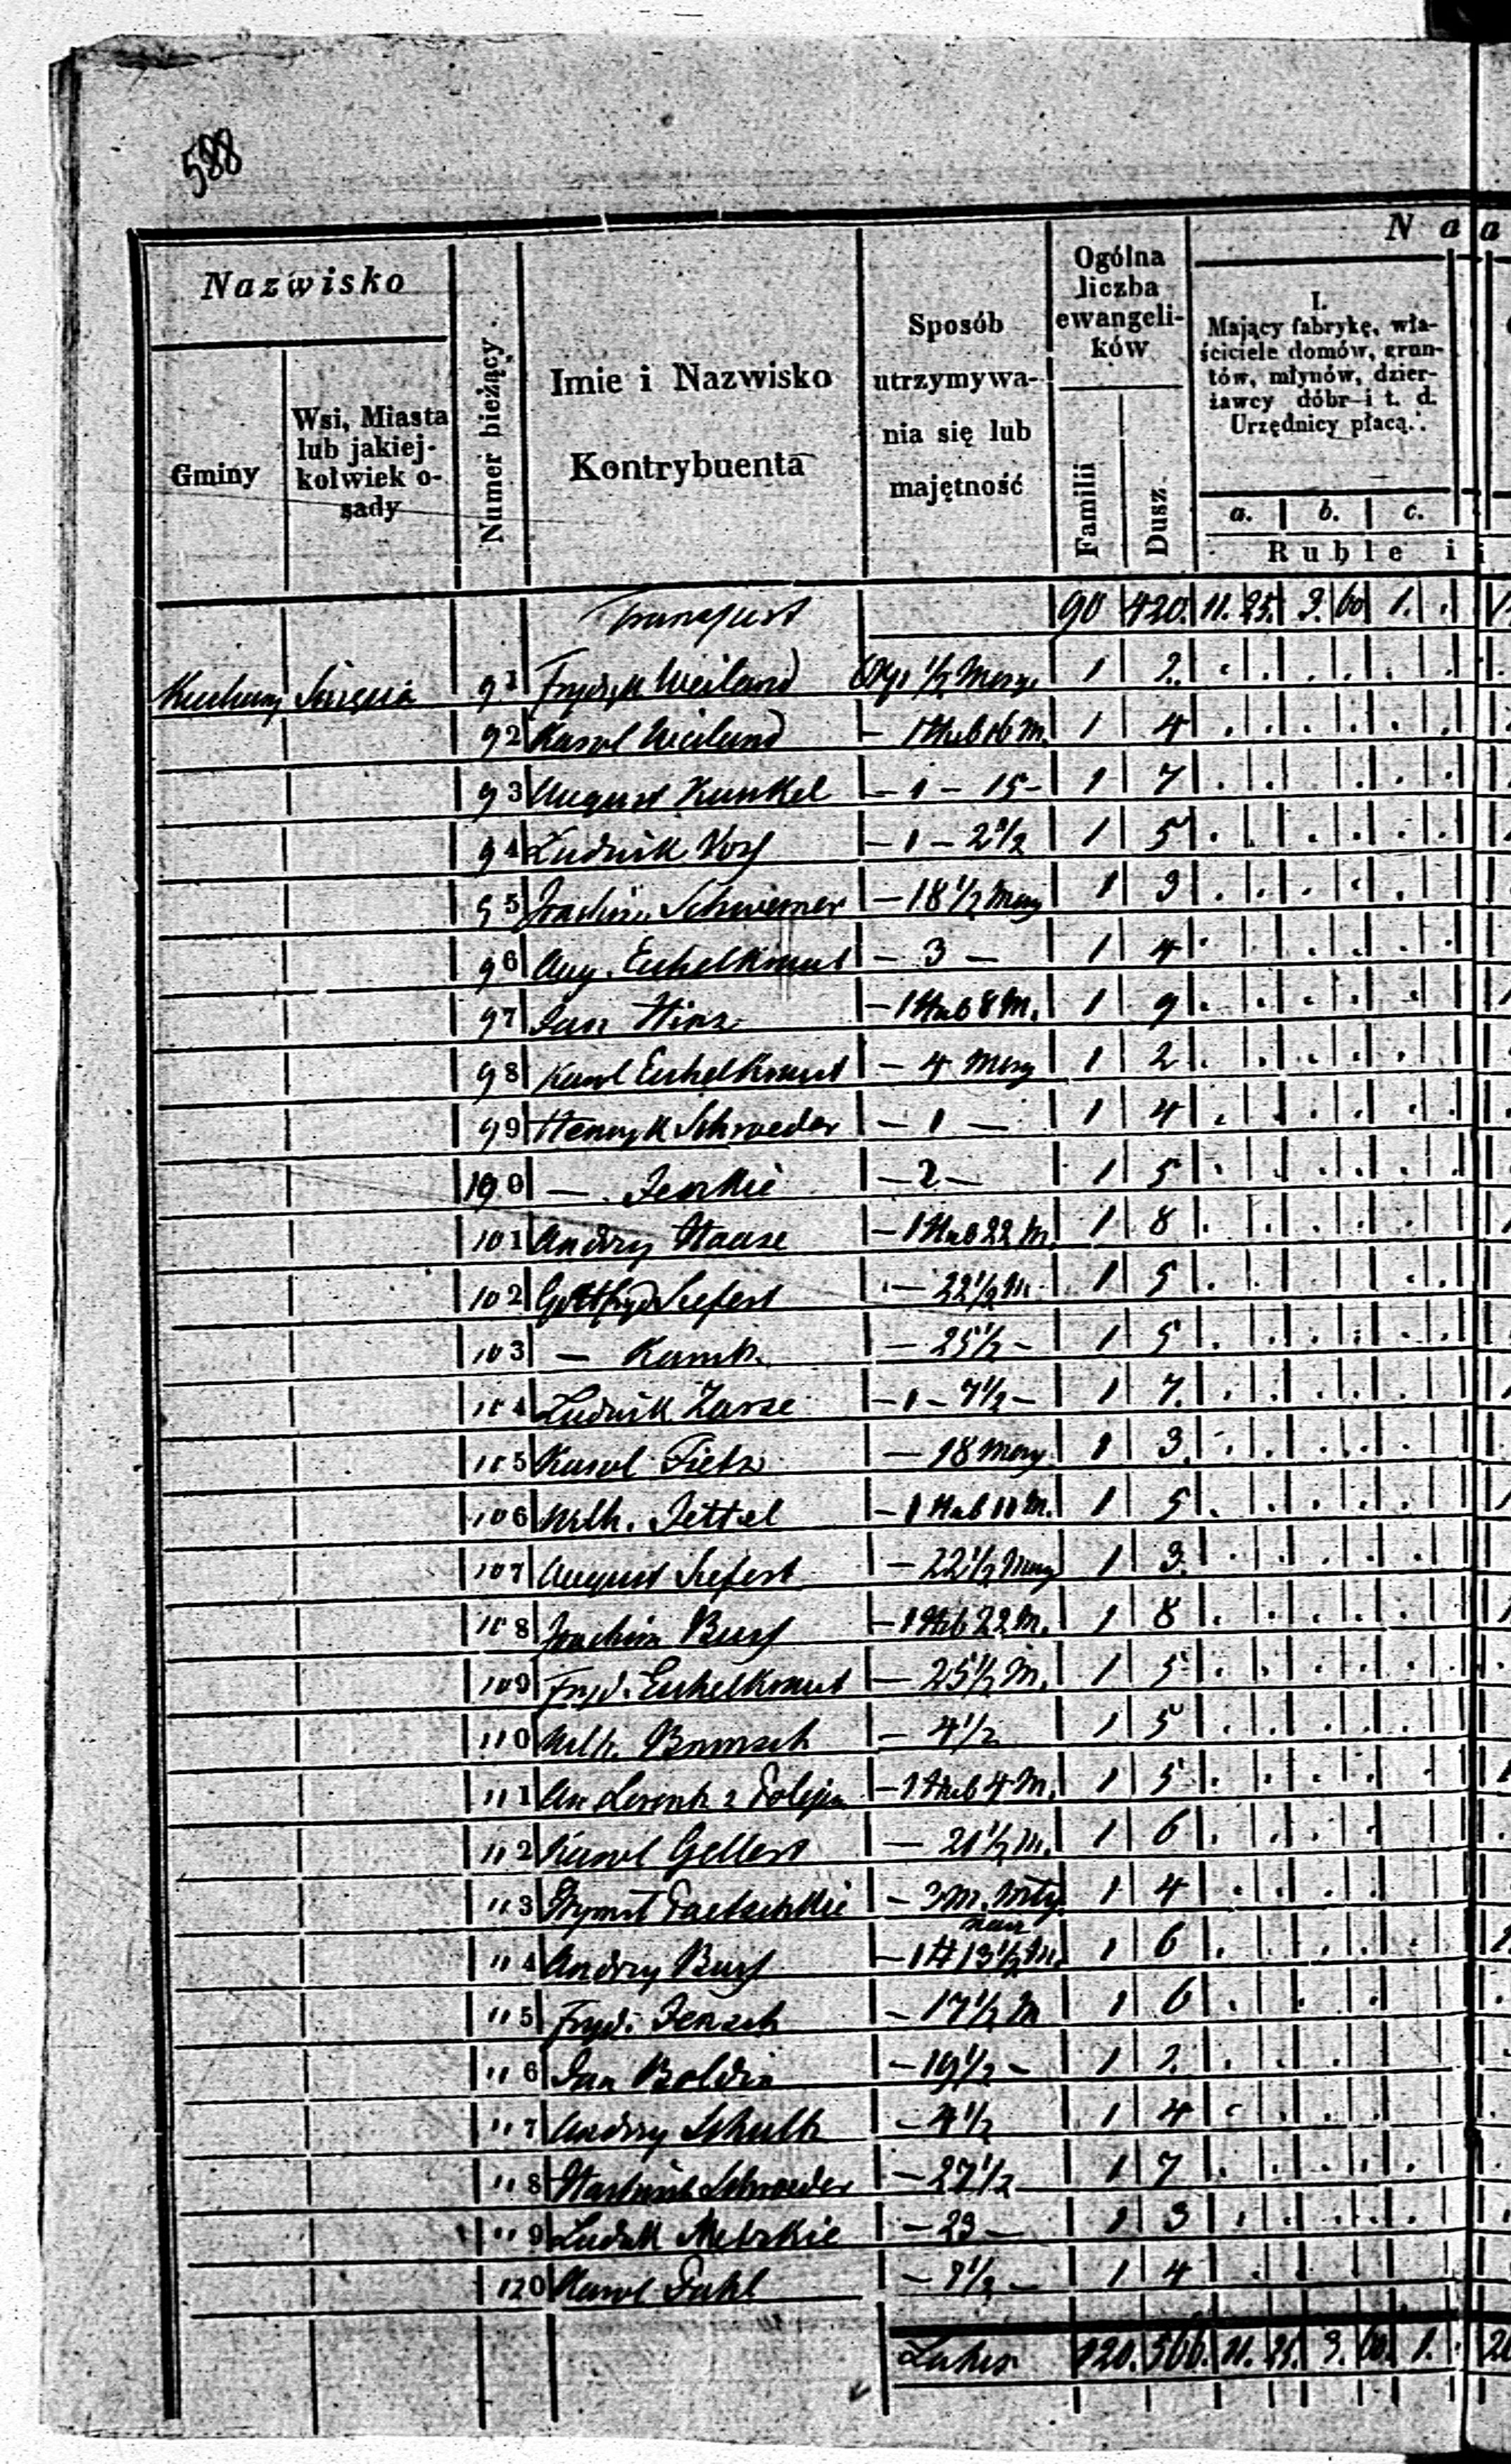 588
N a a
Nazwisko
Gminy
Wsi, Miasta
lub jakiej-
kolwiek o-
sady
Numer bieżący.
Imie i Nazwisko
Kontrybuenta
Sposób
utrzymywa-
nia się lub
majętność
Ogólna
liczba
ewangeli-
ków
Familii
Dusz.
I.
Mający fabrykę, wła-
ściciele domów, grun-
tów, młynów, dzier-
żawcy dóbr i t. d.
Urzędnicy płacą.
a. b. c.
Ruble i
Transport 90 420. 11. 25. 3. 60 1. .
91 Fryderyk Weiland 1 2.
92 Karol Weiland - 1 Hub 16 M. 1 4
93 August Kunkel - 1 - 15 - 1 7
94 Ludwik Voss - 1 - 2 1/2 1 5
95 Joachim Schwemer - 18 1/2 Morg 1 3
96 Aug. Eichelkraut - 3 - 1 4
97 Jan Hinz - 1 Hub 8 M. 1 9
98 Karol Eichelkraut - 4 Morg 1 2
99 Henryk Schroeder - 1 - 1 4
100 — Jeskie - 2 - 1 5
101 Andrzy Haase - 1 Hub 22 M. 1 8
102 Gottfryd Siefert - 22 1/2 M. 1 5
103 — - 25 1/2 - 1 5
104 Ludwik Zarse - 1 - 7 1/2 - 1 7.
105 Karol Tietz - 18 Morg 1 3.
106 Wilh. - 1 Hub 11 M. 1 5
107 August Siefert - 22 1/2 Morg 1 3.
108 Joachim Buss - 1 Hub 22 M. 1 8
109 Fryd. Eichelkraut - 25 1/2 M. 1 5
110 Wilh. - 4 1/2 1 5
111 - 1 Hub 4 M. 1 5
112 Karol Gellert - 21 1/2 M. 1 6
113 - 3 M. 1 4
114 Andrzy Buss - 1 H 13 1/2 M. 1 6
115 Fryd. Jensch - 17 1/2 M 1 6
116 Jan Boldin - 19 1/2 - 1 2.
117 Andrzy Schultz - 4 1/2 1 4
118 Schroeder - 27 1/2 1 7
119 Ludwik - 23 - 1 3
120 Karol Dahl 1 4
Latus 120. 566. 11. 25. 3. 60. 1. .